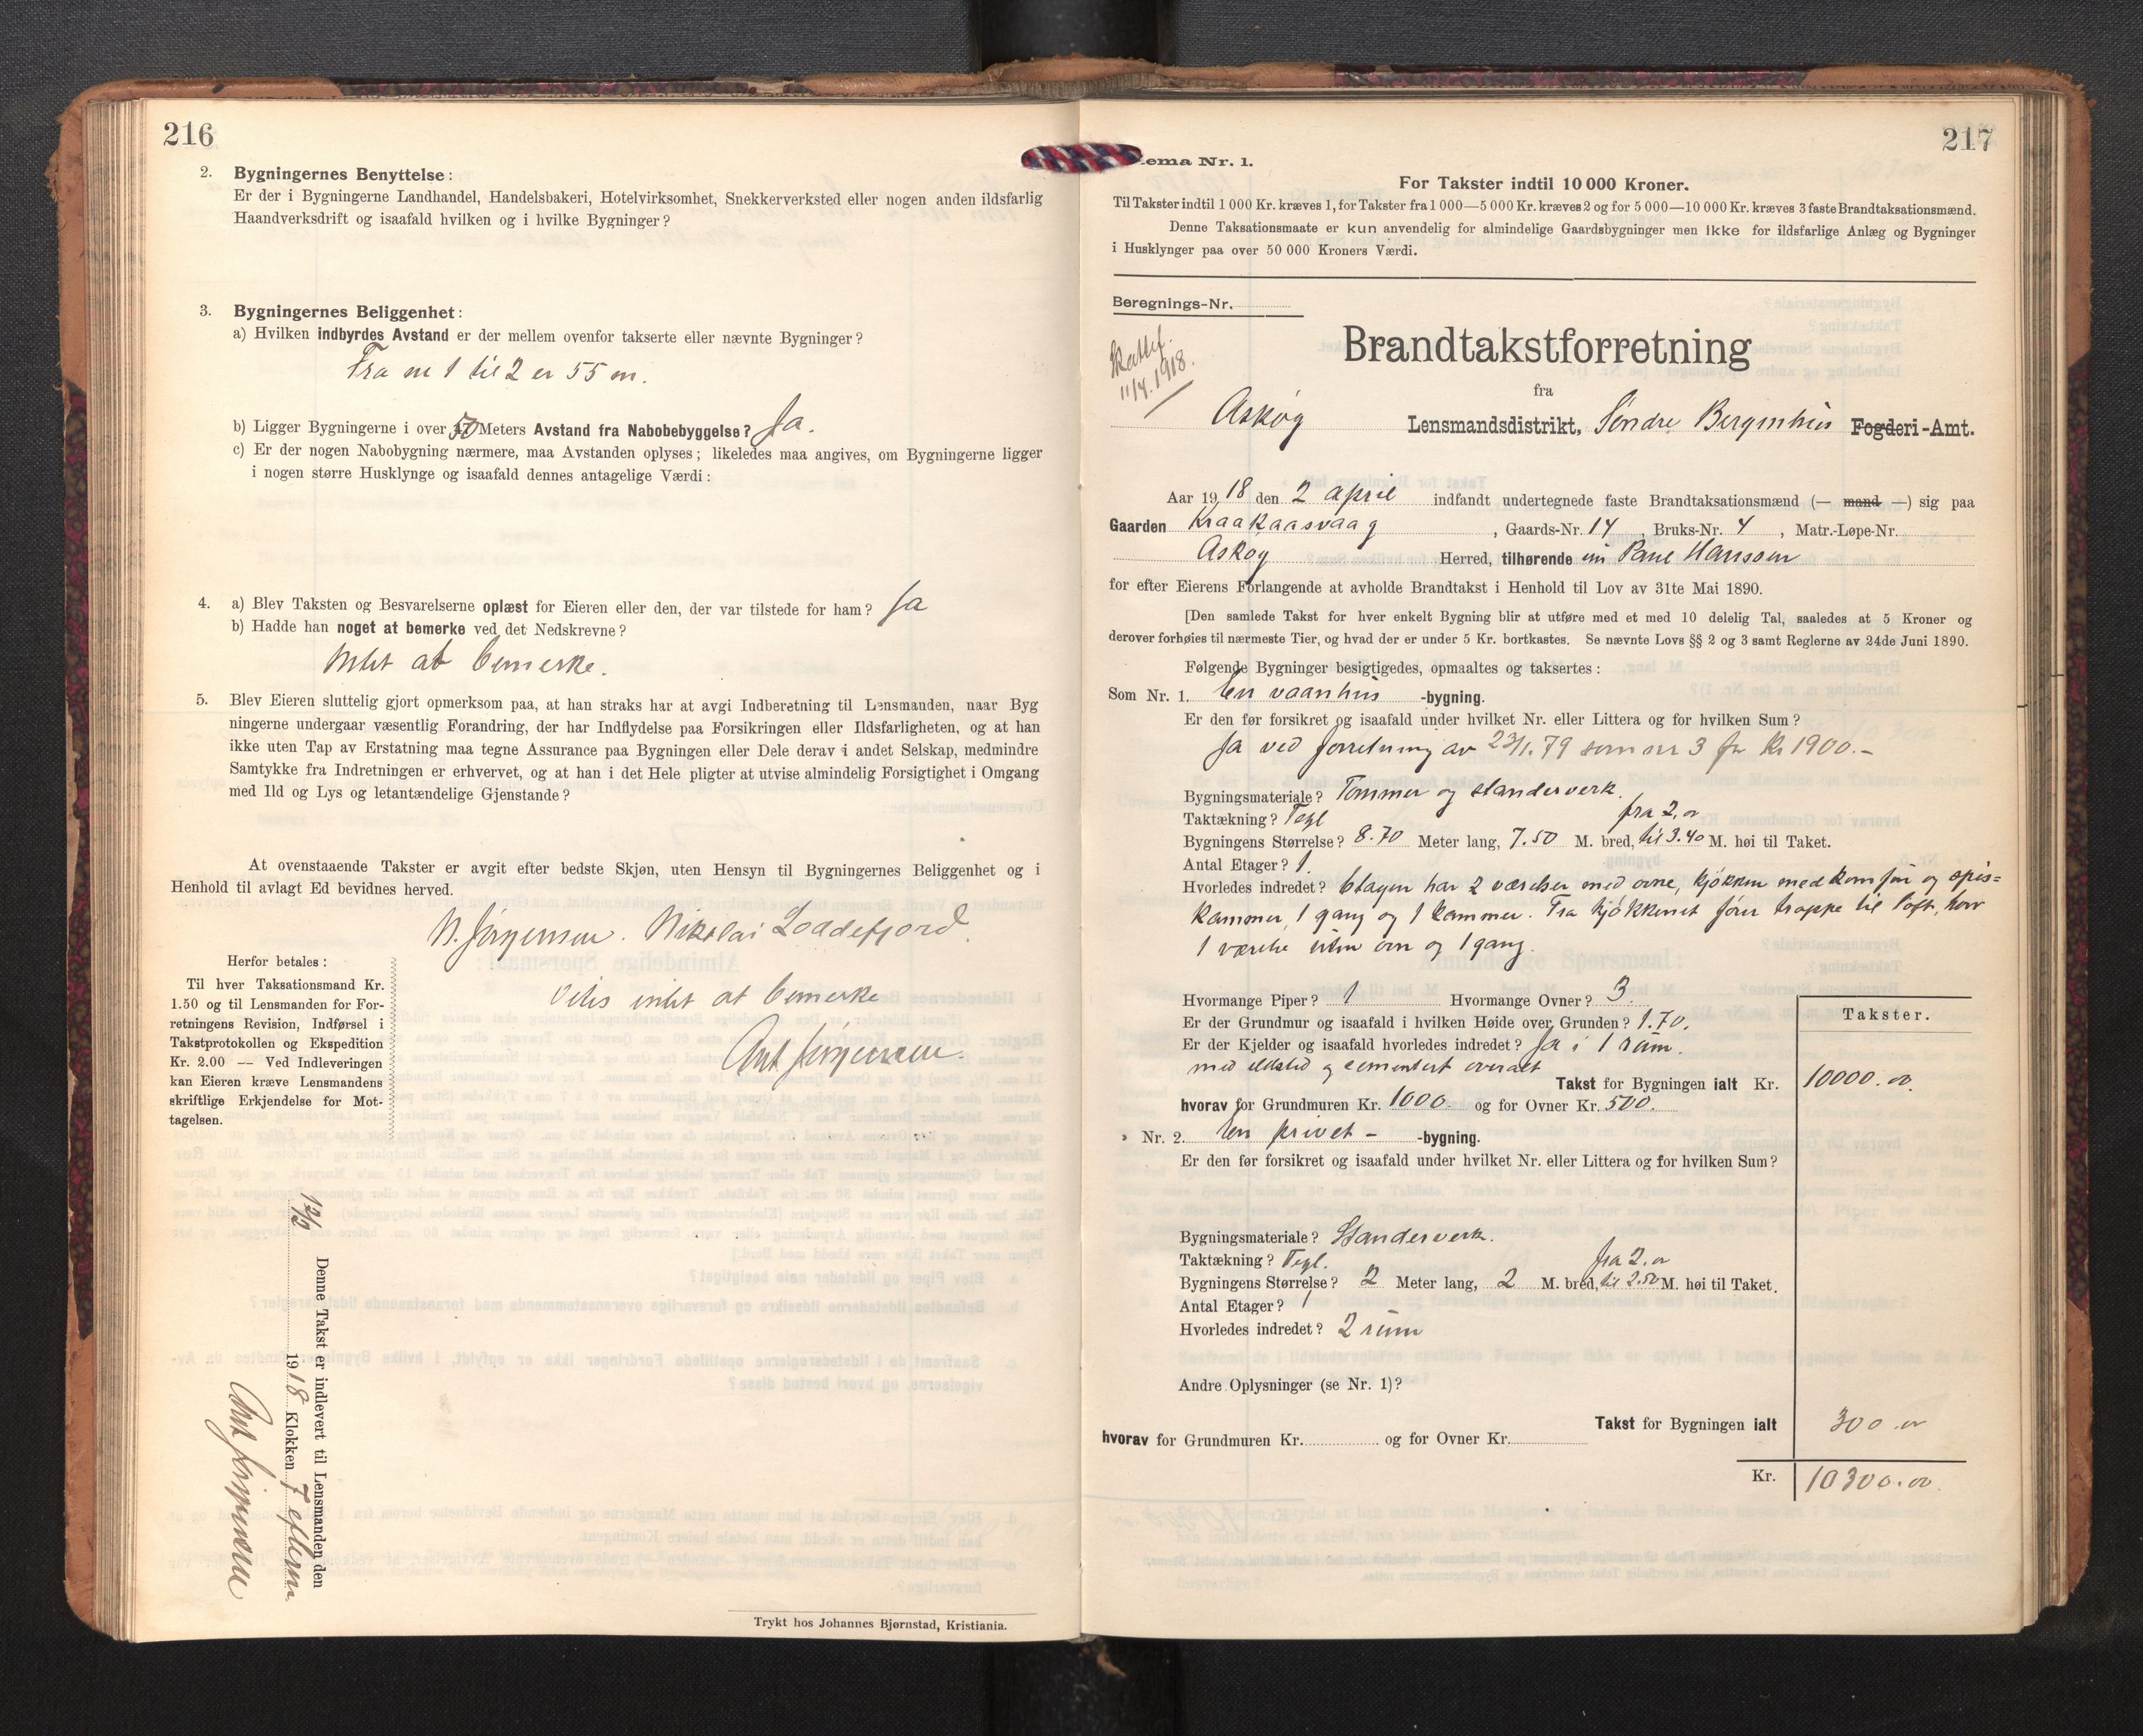 216
2. Bygningernes Benyttelse:
Er der i Bygningerne Landhandel, Handelsbakeri, Hotelvirksomhet, Snekkerverksted eller nogen anden ildsfarlig
Haandverksdrift og isaafald hvilken og i hvilke Bygninger?
3. Bygningernes Beliggenhet:
a) Hvilken indbyrdes Avstand er der mellem ovenfor takserte eller nævnte Bygninger?
Fra nr 1 til 2 er 55 m.
b) Ligger Bygningerne i over 50 Meters Avstand fra Nabobebyggelse? Ja.
c) Er der nogen Nabobygning nærmere, maa Avstanden oplyses; likeledes maa angives, om Bygningerne ligger
i nogen større Husklynge og isaafald dennes antagelige Værdi:
4. a) Blev Taksten og Besvarelserne oplæst for Eieren eller den, der var tilstede for ham? Ja
b) Hadde han noget at bemerke ved det Nedskrevne?
Intet at bemerke.
5. Blev Eieren sluttelig gjort opmerksom paa, at han straks har at avgi Indberetning til Lensmanden, naar Byg
ningerne undergaar væsentlig Forandring, der har Indflydelse paa Forsikringen eller Ildsfarligheten, og at han
ikke uten Tap av Erstatning maa tegne Assurance paa Bygningen eller Dele derav i andet Selskap, medmindre
Samtykke fra Indretningen er erhvervet, og at han i det Hele pligter at utvise almindelig Forsigtighet i Omgang
med Ild og Lys og letantændelige Gjenstande?
At ovenstaaende Takster er avgit efter bedste Skjøn, uten Hensyn til Bygningernes Beliggenhet og i
Henhold til avlagt Ed bevidnes herved.
N. Jørgensen. Nikolai Loddefjord.
Herfor betales:
Til hver Taksationsmand Kr.
1.50 og til Lensmanden for For-
retningens Revision, Indførsel i
Takstprotokollen og Ekspedition
Kr. 2.00 — Ved Indleveringen
kan Eieren kræve Lensmandens
skriftlige Erkjendelse for Mot-
tagelsen.
Vides intet at bemerke
Ant Jørgensen.
Denne Takst er indlevert til Lensmanden den
1918 Klokken 7 efterm.
Ant Jørgensen
Trykt hos Johannes Bjørnstad, Kristiania.
217
ema Nr. 1.
For Takster indtil 10 000 Kroner.
Til Takster indtil 1 000 Kr. kræves 1, for Takster fra 1 000—5 000 Kr. kræves 2 og for 5 000—10 000 Kr. kræves 3 faste Brandtaksationsmænd.
Denne Taksationsmaate er kun anvendelig for almindelige Gaardsbygninger men ikke for ildsfarlige Anlæg og Bygninger
i Husklynger paa over 50 000 Kroners Værdi.
Beregnings-Nr.
11/4.1918.
Brandtakstforretning
fra
Askøy Lensmandsdistrikt, Søndre Bergenhus Fogderi-Amt.
Aar 1918 den 2 april indfandt undertegnede faste Brandtaksationsmænd (— mand —) sig paa
Gaarden Kraakaasvaag, Gaards-Nr. 14, Bruks-Nr. 4, Matr.-Løpe-Nr.
Askøy Herred, tilhørende Paul Hanssen
for efter Eierens Forlangende at avholde Brandtakst i Henhold til Lov av 31te Mai 1890.
[Den samlede Takst for hver enkelt Bygning blir at utføre med et med 10 delelig Tal, saaledes at 5 Kroner og
derover forhøies til nærmeste Tier, og hvad der er under 5 Kr. bortkastes. Se nævnte Lovs §§ 2 og 3 samt Reglerne av 24de Juni 1890.
Følgende Bygninger besigtigedes, opmaaltes og taksertes:
Som Nr. 1. En vaanhus -bygning.
Er den før forsikret og isaafald under hvilket Nr. eller Littera og for hvilken Sum?
Ja ved forretning av 23/1.79 som nr 3 for Kr 1900.-
Bygningsmateriale? Tømmer og standerverk.
Taktækning? Tegl
fra 2,00
Bygningens Størrelse? 8.70 Meter lang, 7.50 M. bred, til 3.40 M. høi til Taket.
Antal Etager? 1.
Hvorledes indredet? Etagen har 2 værelser med ovne, kjøkken med komfur og spis=
kammer, 1 gang og 1 kammer. Fra kjøkkenet fører trappe til loft, hvor
1 værelse uten ovn og 1 gang.
Hvormange Piper? 1 Hvormange Ovner? 3.
Er der Grundmur og isaafald i hvilken Høide over Grunden? 1.70.
Er der Kjelder og isaafald hvorledes indredet? Ja i 1 rum.
med ildsted og cementert overalt
Takster.
Takst for Bygningen ialt Kr. 10000.00
hvorav for Grundmuren Kr. 1000. og for Ovner Kr. 500.
» Nr. 2. En privet - -bygning.
Er den før forsikret og isaafald under hvilket Nr. eller Littera og for hvilken Sum?
Bygningsmateriale? Standerverk.
Taktækning? Tegl.
fra 2.00
Bygningens Størrelse? 2 Meter lang, 2 M. bred, til 2.50 M. høi til Taket.
Antal Etager? 1
Hvorledes indredet? 2 rum
Andre Oplysninger (se Nr. 1)?
Takst for Bygningen ialt 300.00
hvorav for Grundmuren Kr. og for Ovner Kr.
Kr. 10300.00.